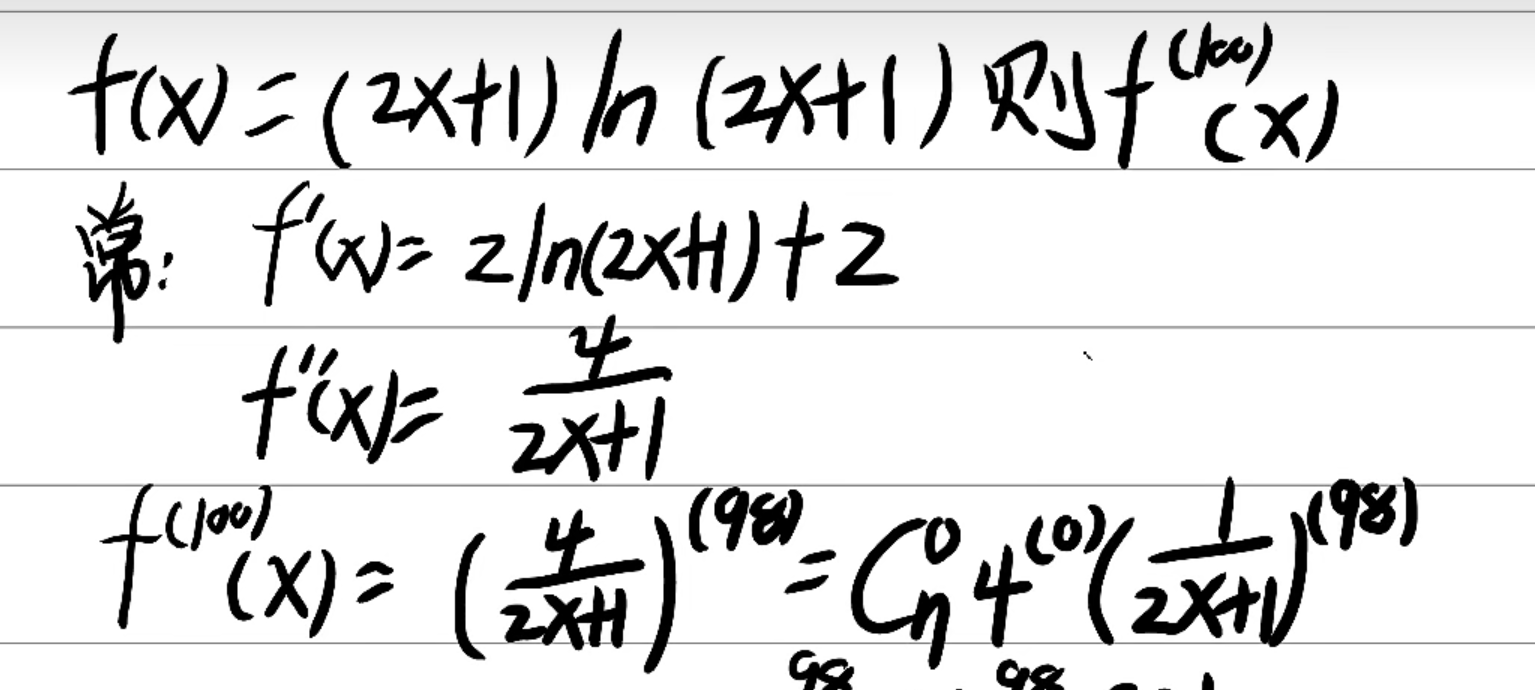 f(x)=(2x+1)ln(2x+1)则f^(100)(x)
常: f'(x)=2ln(2x+1)+2
f''(x)=4/(2x+1)
f^(100)(x)=(4/(2x+1))^(98)=C_n^0 4^(0)(1/(2x+1))^(98)
98 98